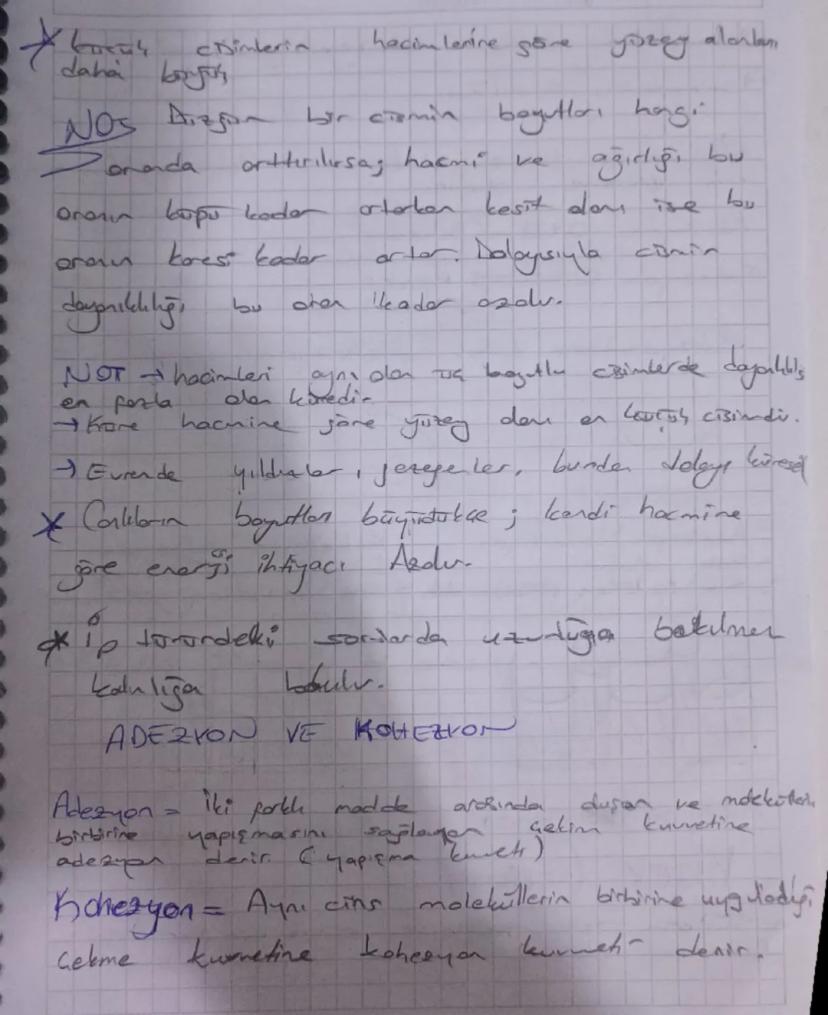 * küçük cisimlerin hacimlerine göre yüzey alanları
daha büyük
NOT Düzgün bir cismin boyutları hangi
oranda arttırılırsa; hacmi ve ağırlığı bu
oranın küpü kadar artarken kesit alanı ise bu
oranın karesi kadar artar. Dolayısıyla cismin
dayanıklılığı bu oran kadar azalır.
NOT → hacimleri aynı olan üç boyutlu cisimlerde dayanıklılığı
en fazla olan küredir
→ Küre hacmine göre yüzey alanı en küçük cisimdir.
→ Evrende yıldızlar, gezegenler, bundan dolayı küresel
* Canlıların boyutları büyüdükçe; kendi hacmine
göre enerji ihtiyacı Azalır.
* İp türündeki sorularda uzunluğa bakılmaz
kalınlığa bakılır.
ADEZYON VE KOHEZYON
Adezyon = İki farklı madde arasında oluşan ve moleküllerin
birbirine yapışmasını sağlayan çekim kuvvetine
adezyon denir (yapışma kuvveti)
Kohezyon = Aynı cins moleküllerin birbirine uyguladığı
çekme kuvvetine kohezyon kuvveti denir.